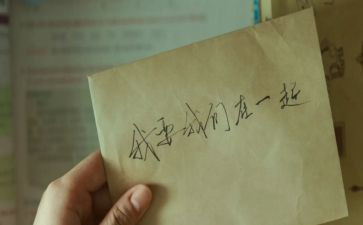 我要我们在一起